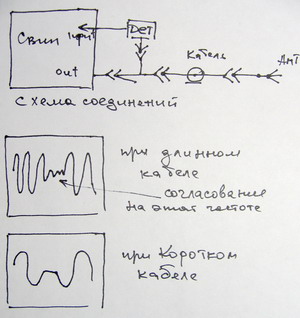 Свип Input
Det
out
Кабель
Ант
Схема соединений
при длинном
кабеле
согласование
на этой частоте
при Коротком
кабеле